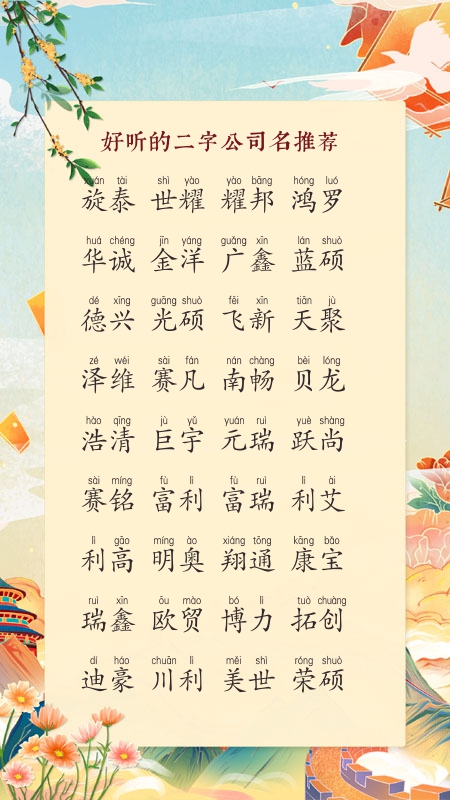 好听的二字公司名推荐
xuán tài shì yào yào bāng hóng luó
旋泰 世耀 耀邦 鸿罗
huá chéng jīn yáng guǎng xīn lán shuò
华诚 金洋 广鑫 蓝硕
dé xīng guāng shuò fēi xīn tiān jù
德兴 光硕 飞新 天聚
zé wéi sài fán nán chàng bèi lóng
泽维 赛凡 南畅 贝龙
hào qīng jù yǔ yuán ruì yuè shàng
浩清 巨宇 元瑞 跃尚
sài míng fù lì fù ruì lì ài
赛铭 富利 富瑞 利艾
lì gāo míng ào xiáng tōng kāng bǎo
利高 明奥 翔通 康宝
ruì xīn ōu mào bó lì tuò chuàng
瑞鑫 欧贸 博力 拓创
dí háo chuān lì měi shì róng shuò
迪豪 川利 美世 荣硕